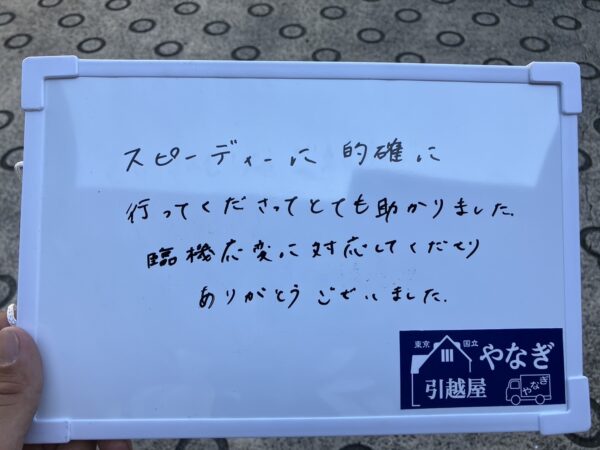 スピーディーに 的確に
行ってくださってとても助かりました.
臨機応変に対応してくださり
ありがとうございました.
東京 国立
やなぎ
引越屋
やなぎ